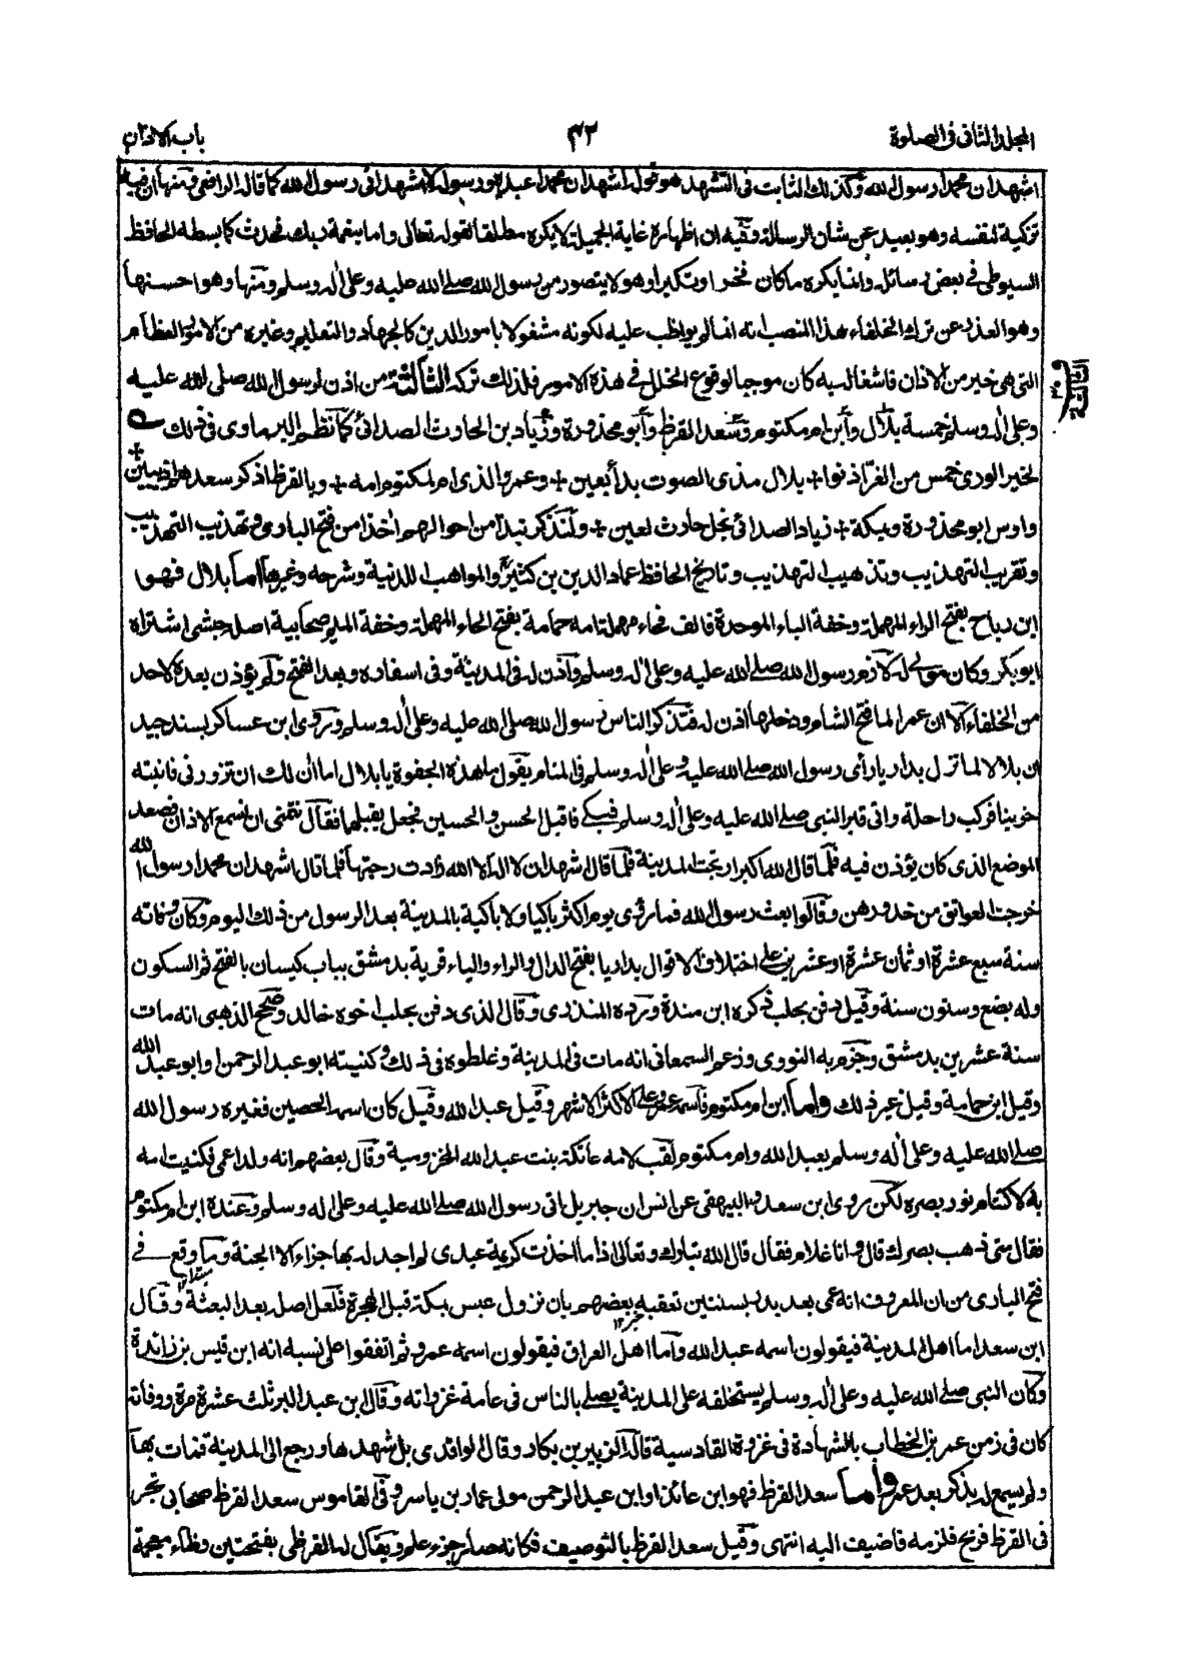 المجلد الثانی فی الصلوة
۴۲
باب الاذان
اشهد ان محمدا رسول الله وكذلك الثابت فی التشهد هو قول اشهد ان محمدا عبده ورسوله لا اشهد انی رسول الله كما قاله الرافعی ومنها ان فیه
تزكية لنفسه وهو بعيد عن شان الرسالة وفیه ان اظهاره غاية الجميلة لا يكره مطلقا لقوله تعالى واما بنعمة ربك فحدث كما بسطه الحافظ
السيوطی فی بعض رسائله وانما يكره ما كان فخرا وتكبرا وهو لا يتصور من رسول الله صلى الله عليه وعلى اله وسلم ومنها وهو احسنها
وهو العذر عن ترك الخلفاء هذا المنصب انه انما لم يواظب عليه لكونه مشغولا بامور الدين كالجهاد والتعليم وغيره من الامور العظام
التی هی خير من الاذان فاشغاله به كان موجبا لوقوع الخلل فی هذه الامور فلذلك تركه الثالثة من اذن لرسول الله صلى الله عليه
الثالثة
وعلى اله وسلم خمسة بلال وابن ام مكتوم وسعد القرظ وابو محذورة وزياد بن الحارث الصدائی كما نظم البرماوی فی ذلك ؎
لخير الورى خمس من الغر اذنوا + بلال مذی الصوت بدأ بعين + وعمرو الذی ام لمكتوم امه + وبالقرظ اذكر سعدهم اذ يبين +
واوس ابو محذورة وبمكة + زياد الصدائی نجل حارث لعين + ولنذكر نبذا من احوالهم اخذا من فتح الباری وتهذيب التهذيب
وتقريب التهذيب وتذهيب التهذيب وتاريخ الحافظ عماد الدين بن كثير والمواهب اللدنية وشرحه وغيرها اما بلال فهو
ابن رباح بفتح الراء المهملة وخفة الباء الموحدة فالف فحاء مهملة امه حمامة بفتح الحاء المهملة وخفة الميم صحابية اصله حبشی اشتراه
ابو بكر وكان مولى له لازم رسول الله صلى الله عليه وعلى اله وسلم واذن له فی المدينة وفی اسفاره وبعد الفتح ولم يؤذن بعده لاحد
من الخلفاء الا ان عمر لما فتح الشام ودخلها اذن له فتذكر الناس رسول الله صلى الله عليه وعلى اله وسلم وروى ابن عساكر بسند جيد
ان بلالا لما نزل بداريا رأى رسول الله صلى الله عليه وعلى اله وسلم فی المنام يقول ما هذه الجفوة يا بلال اما ان لك ان تزورنی فانتبه
حزينا فركب راحلة واتى قبر النبی صلى الله عليه وعلى اله وسلم فبكى فاقبل الحسن والحسين فجعل يقبلهما فقالا نتمنى ان نسمع الاذان فصعد
الموضع الذی كان يؤذن فيه فلما قال الله اكبر ارتجت المدينة فلما قال اشهد ان لا اله الا الله زادت رجتها فلما قال اشهد ان محمدا رسول الله
خرجت العواتق من خدورهن وقالوا بعث رسول الله فما رؤی يوم اكثر باكيا ولا باكية بالمدينة بعد الرسول من ذلك اليوم وكان وفاته
سنة سبع عشرة او ثمان عشرة او عشرين على اختلاف الاقوال بداريا بفتح الدال والراء والياء قرية بدمشق بباب كيسان بالفتح ثم السكون
وله بضع وستون سنة وقيل دفن بحلب ذكره ابن مندة ورده المنذری وقال الذی دفن بحلب اخوه خالد وصحح الذهبی انه مات
سنة عشرين بدمشق وجزم به النووی وزعم السمعانی انه مات فی المدينة وغلطوه فی ذلك وكنيته ابو عبد الرحمن وابو عبد الله
وقيل ابن حمامة وقيل غير ذلك واما ابن ام مكتوم فاسمه عمرو على الاكثر الاشهر وقيل عبد الله وقيل كان اسمه الحصين فغيره رسول الله
صلى الله عليه وعلى اله وسلم بعبد الله وام مكتوم لقب لامه عاتكة بنت عبد الله المخزومية وقال بعضهم انه ولد اعمى فكنيت امه
به لاكتتام نور بصره لكن روى ابن سعد والبيهقی عن انس ان جبريل اتى رسول الله صلى الله عليه وعلى اله وسلم وعنده ابن ام مكتوم
فقال متى ذهب بصرك قال وانا غلام فقال قال الله تبارك وتعالى اذا ما اخذت كريمة عبدی لم اجد له بها جزاء الا الجنة وما وقع فی
مبتدا ۱۲
فتح الباری من ان المعروف انه عمی بعد بدر بسنتين تعقبه بعضهم بان نزول عبس بمكة قبل الهجرة فلعل اصله بعد البعثة وقال
خبر ۱۲
ابن سعد اما اهل المدينة فيقولون اسمه عبد الله واما اهل العراق فيقولون اسمه عمرو ثم اتفقوا على نسبه انه ابن قيس بن زائدة
وكان النبی صلى الله عليه وعلى اله وسلم يستخلفه على المدينة يصلی بالناس فی عامة غزواته وقال ابن عبد البر ثلث عشرة مرة ووفاته
كان فی زمن عمر بن الخطاب بالشهادة فی غزوة القادسية قاله الزبير بن بكار وقال الواقدی بل شهدها ورجع الى المدينة فمات بها
ولم يسمع له بذكر بعد عمر واما سعد القرظ فهو ابن عائذ او ابن عبد الرحمن مولى عمار بن ياسر وفی القاموس سعد القرظ صحابی تجر
فی القرظ فربح فلزمه فاضيف اليه انتهى وقيل سعد القرظ بالتوصيف فكانه صار جزء علم ويقال له القرظی بفتحتين وظاء معجمة